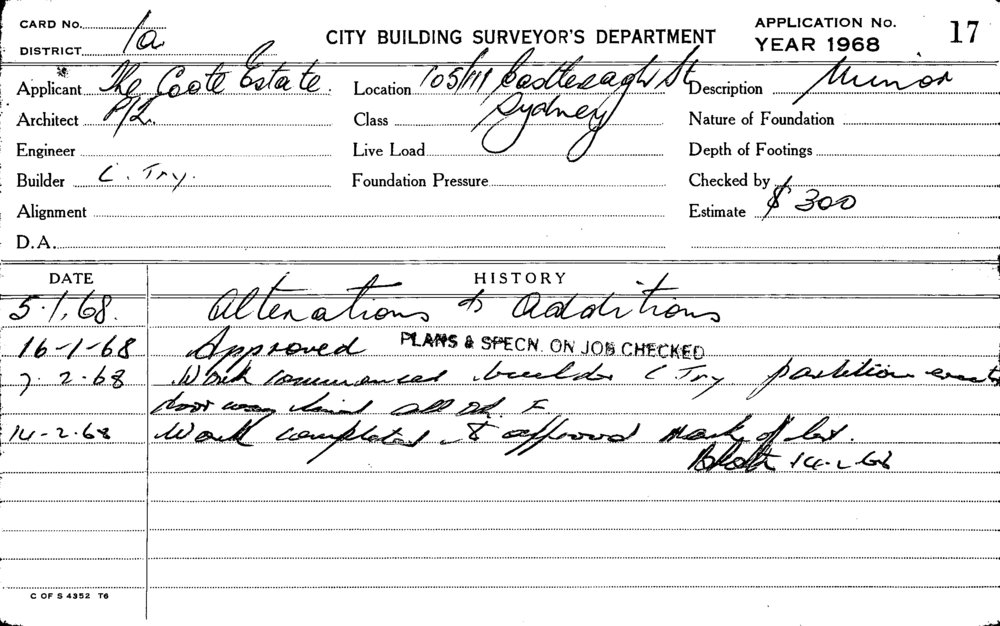 CARD No.
DISTRICT 1a
CITY BUILDING SURVEYOR'S DEPARTMENT
APPLICATION No. 17
YEAR 1968
Applicant The Coote Estate
Location 105/111 Castlereagh St
Description Minor
Architect P/L.
Class Sydney
Nature of Foundation
Engineer
Live Load
Depth of Footings
Builder C. Try.
Foundation Pressure
Checked by
Alignment
Estimate $300
D.A.
DATE HISTORY
5.1.68. Alterations & Additions
16-1-68 Approved PLANS & SPECN. ON JOB CHECKED
7.2.68 Work commenced builder C Try partition
door way all
14-2-68 Work completed & approved of
14-2-68
C OF S 4352 T6